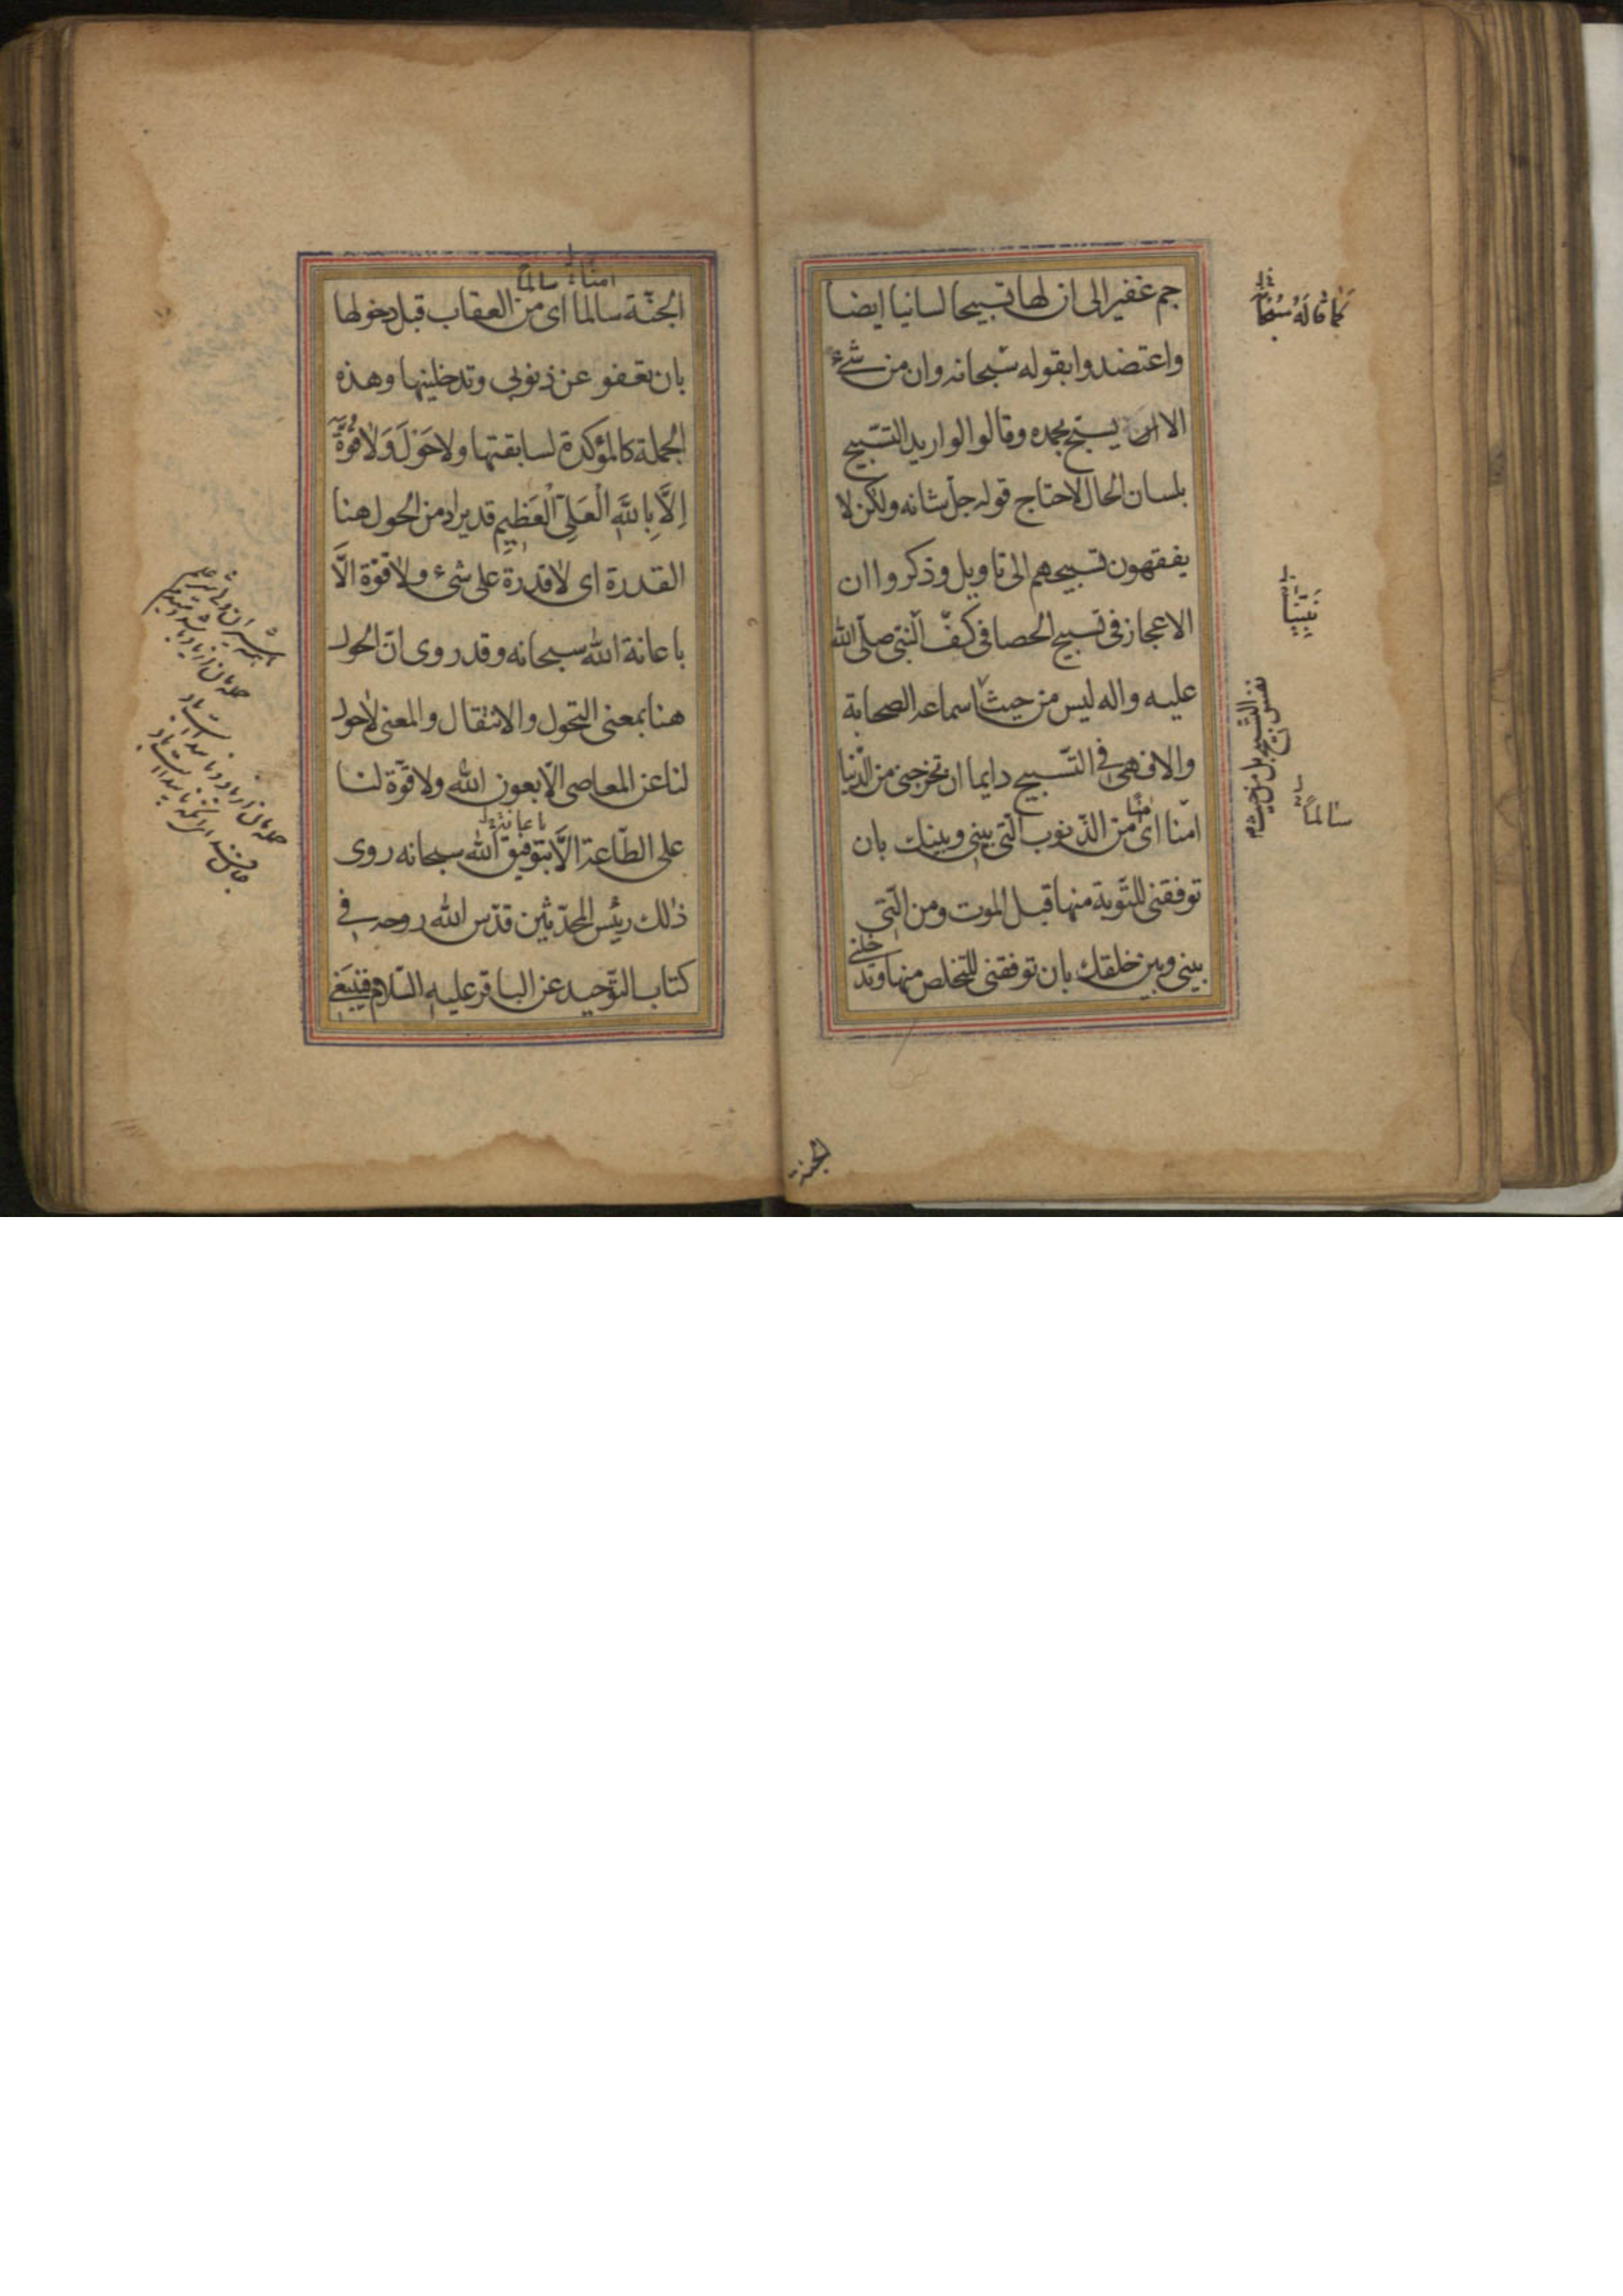 جم غفير الى ان لها تسبيحا لسانيا ايضا
واعتضدوا بقوله سبحانه وان من شئ
الا يسبح بحمده وقالوا لو اريد التسبيح
بلسان الحال لاحتاج قوله جل شانه ولكن لا
يفقهون تسبيحهم الى تاويل وذكروا ان
الاعجاز فى تسبيح الحصا فى كف النبى صلى الله
عليه واله ليس من حيث اسماعه الصحابة
والا فهى فى التسبيح دايما ان تخرجنى من الدنيا
امنا اى من الذنوب التى بينى وبينك بان
توفقنى للتوبة منها قبل الموت ومن التى
بينى وبين خلقك بان توفقنى للتخلص منها وتدخلنى
سالماً
نفس التسبيح بل من حيث
الجنة
امناً سالماً
الجنة سالما اى من العقاب قبل دخولها
بان تعفو عن ذنوبى وتدخلينها وهذه
الجملة كالمؤكدة لسابقتها ولا حَوْلَ وَلا قُوَّةَ
اِلَّا بِاللهِ الْعَلِىِّ الْعَظيمِ قد يراد من الحول هنا
القدرة اى لا قدرة على شئ ولا قوة الَّا
باعانة الله سبحانه وقد روى ان الحول
هنا بمعنى التحول والانتقال والمعنى لا حول
لنا عن المعاصى الا بعون الله ولا قوة لنا
باعانة
على الطاعة الَّا بتوفيق الله سبحانه روى
ذلك رئيس المحدثين قدس الله روحه فى
كتاب التوحيد عن الباقر عليه السلام فينبغى